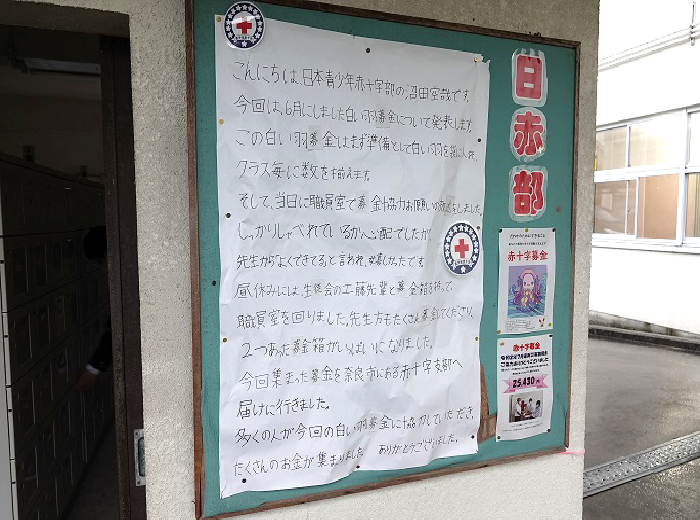 こんにちは、日本青少年赤十字部の沼田
です。
今回は、6月にしました白い羽募金について発表します。
この白い羽募金はまず準備として白い羽を袋に入れ、
クラス毎に数を揃えます。
そして、当日に職員室で募金協力お願いの放送をしました。
しっかりしゃべれているか心配でしたが、
先生からよくできてると言われ、嬉しかったです。
昼休みには、生徒会の工藤先輩と募金箱を持って、
職員室を回りました。先生方もたくさん募金してくださり、
2つあった募金箱がいっぱいになりました。
今回集まった募金を奈良市にある赤十字支部へ
届けに行きました。
多くの人が今回の白い羽募金に協力していただき、
たくさんのお金が集まりました ありがとうございました。
日赤部
赤十字募金
赤十字募金
25,430円